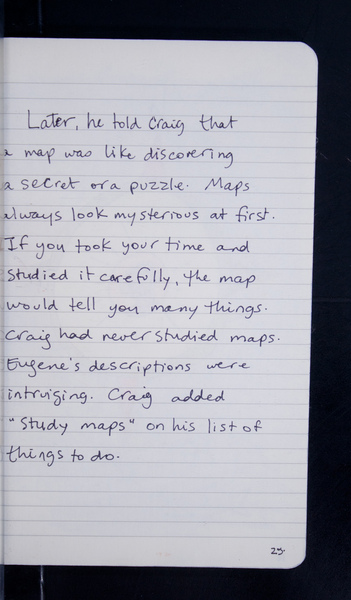 Later, he told Craig that
a map was like discovering
a secret or a puzzle. Maps
always look mysterious at first.
If you took your time and
studied it carefully, the map
would tell you many things.
Craig had never studied maps.
Eugene's descriptions were
intruiging. Craig added
"Study maps" on his list of
things to do.
25.